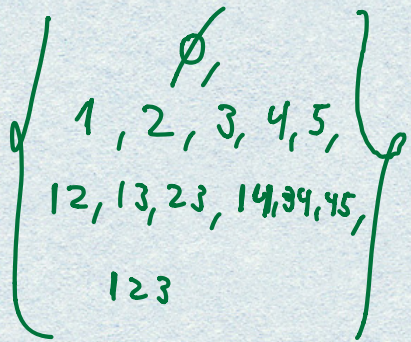 { ∅,
1, 2, 3, 4, 5,
12, 13, 23, 14, 34, 45,
123 }